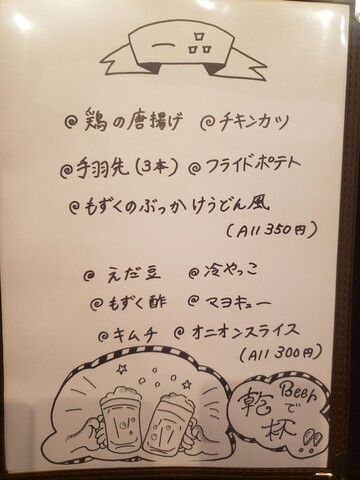 一品
@ 鶏の唐揚げ @ チキンカツ
@ 手羽先 (3本) @ フライドポテト
@ もずくのぶっかけうどん風
(All 350円)
@ えだ豆 @ 冷やっこ
@ もずく酢 @ マヨキュー
@ キムチ @ オニオンスライス
(All 300円)
Beerで
乾杯!!